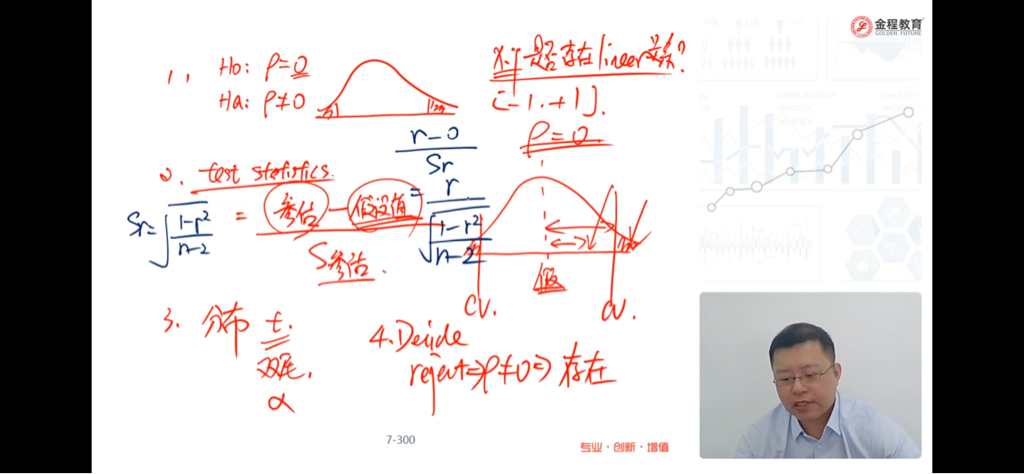 金程教育
GOLDEN FUTURE
1, Ho: ρ=0
Ha: ρ≠0
x.y是否存在linear关系?
[-1.+1].
ρ=0.
2. test statistics.
r-0
Sr
Sr=√1-r²/n-2 = 参估-假设值/S参估. = r/√1-r²/n-2
假
CV. CV.
3. 分布 t.
双尾.
α
4. Decide
reject⇒ρ≠0⇒存在
7-300
专业·创新·增值